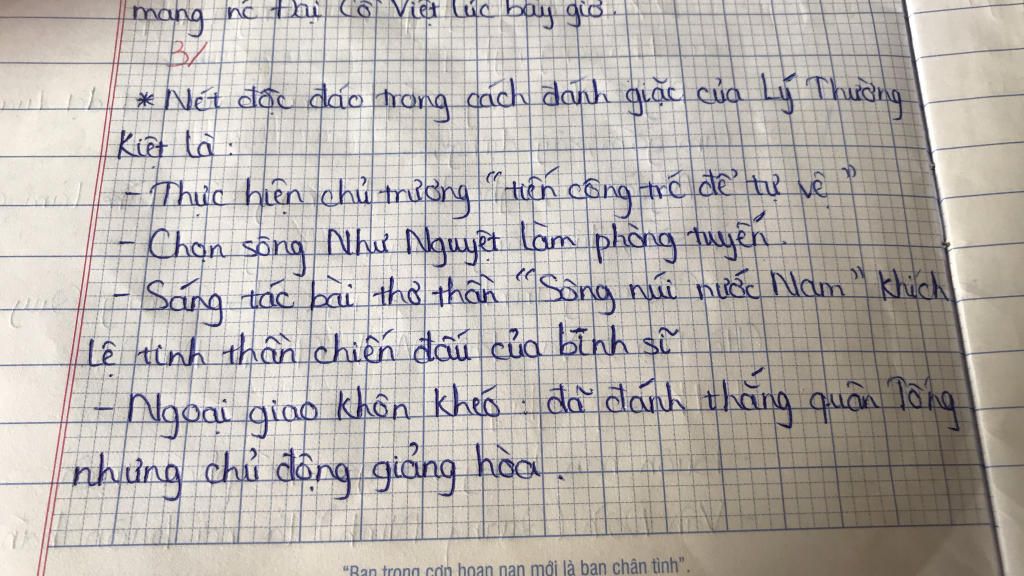 mang nc Đại Cồ Việt lúc bấy giờ.
3/
* Nét độc đáo trong cách đánh giặc của Lý Thường
Kiệt là:
- Thực hiện chủ trương "tiến công trc để tự vệ"
- Chọn sông Như Nguyệt làm phòng tuyến.
- Sáng tác bài thơ thần "Sông núi nước Nam" khích
lệ tinh thần chiến đấu của binh sĩ
- Ngoại giao khôn khéo: đã đánh thắng quân Tống
nhưng chủ động giảng hòa.
"Bạn trong cơn hoạn nạn mới là bạn chân tình".